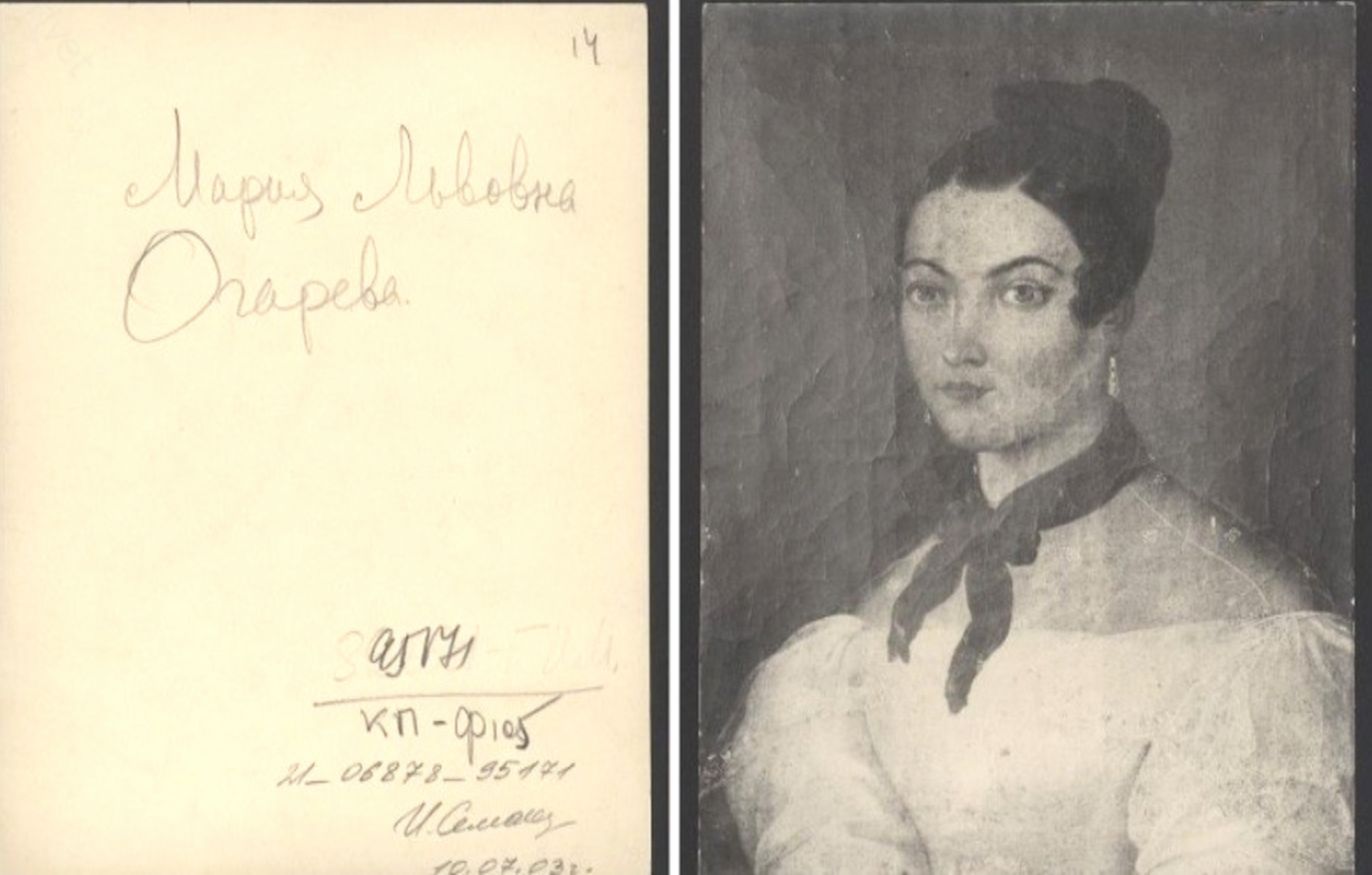 14
Мария Львовна
Огарева.
95171
КП-ф105
21_06878_95171
10.07.03г.